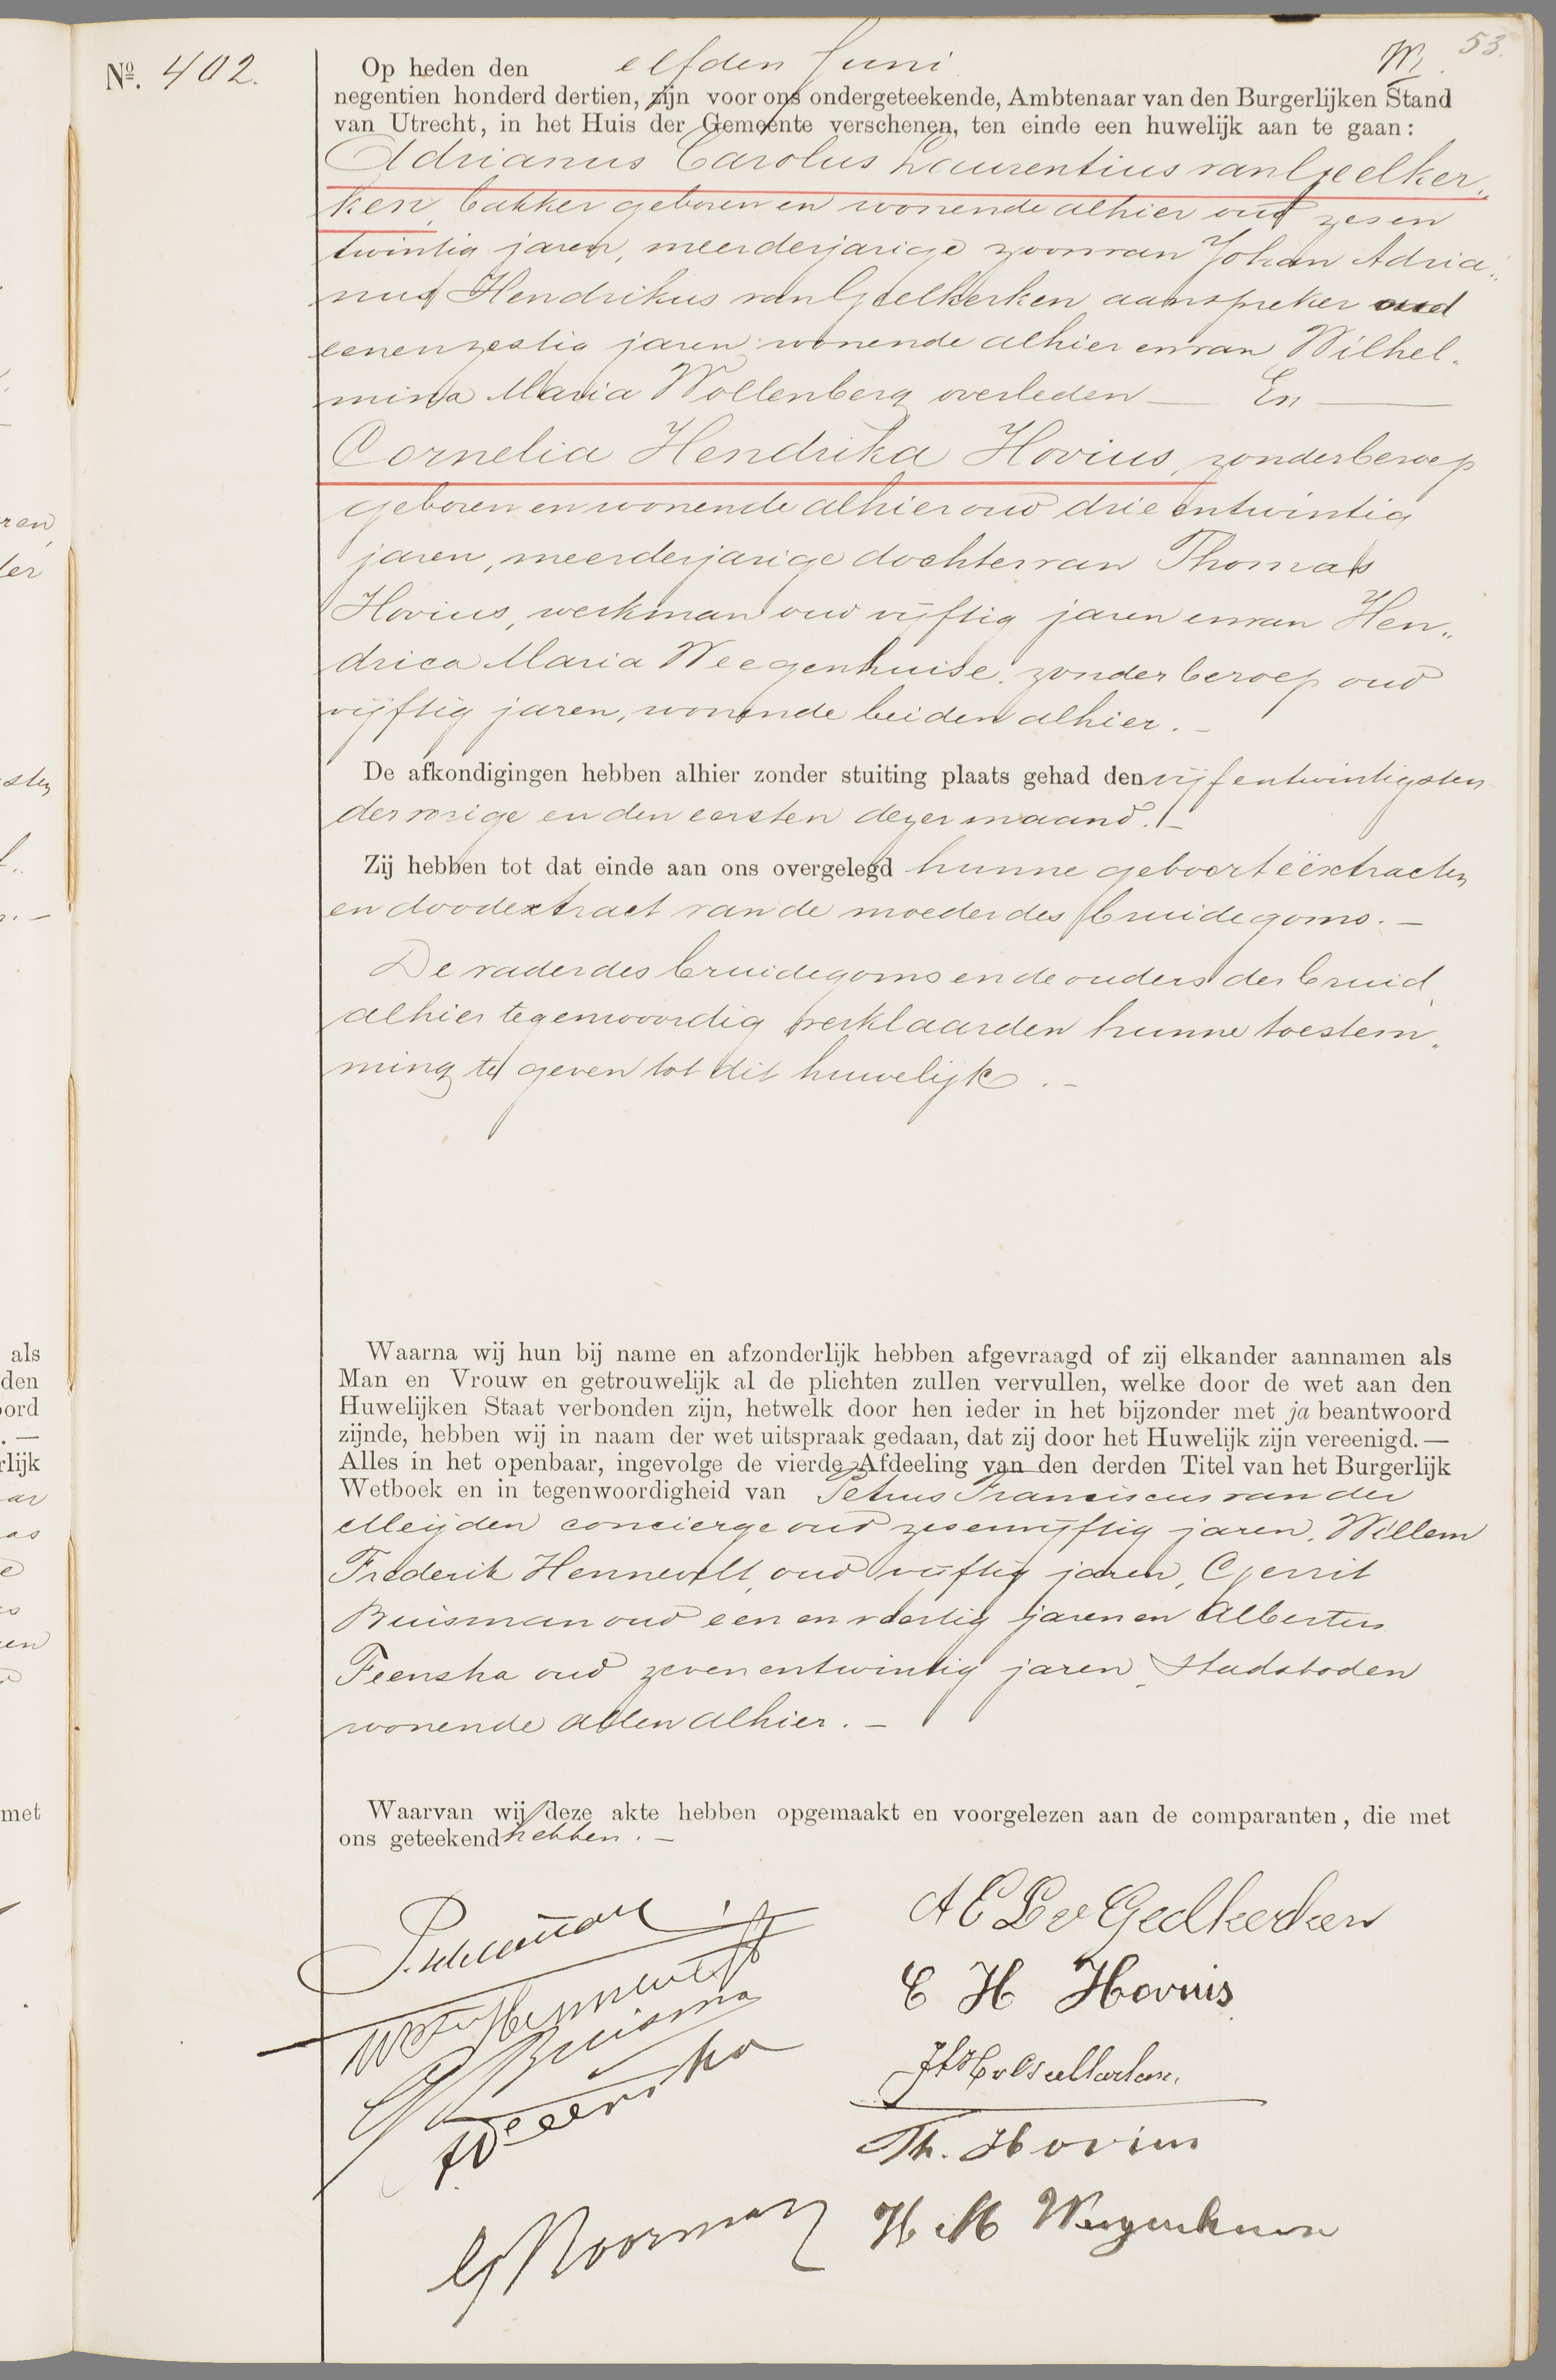 53.
Nº. 402.
Op heden den elfden Juni
negentien honderd dertien, zijn voor ons ondergeteekende, Ambtenaar van den Burgerlijken Stand
van Utrecht, in het Huis der Gemeente verschenen, ten einde een huwelijk aan te gaan:
Adrianus Carolus Laurentius van Geelker„
ken, bakker geboren en wonende alhier oud zes en
twintig jaren, meerderjarige zoon van Johan Adria„
nus Hendrikus van Geelkerken aanspreker oud
eenenzestig jaren wonende alhier en van Wilhel„
mina Maria Wollenberg overleden — En —
Cornelia Hendrika Hovius, zonder beroep
geboren en wonende alhier oud drie entwintig
jaren, meerderjarige dochter van Thomas
Hovius, werkman oud vijftig jaren en van Hen„
drica Maria Weegenhuise, zonder beroep oud
vijftig jaren, wonende beiden alhier. —
De afkondigingen hebben alhier zonder stuiting plaats gehad den vijfentwintigsten
der vorige en den eersten dezer maand. —
Zij hebben tot dat einde aan ons overgelegd hunne geboorteëxtracten
en doodextract van de moeder des bruidegoms. —
De vader des bruidegoms en de ouders der bruid
alhier tegenwoordig verklaarden hunne toestem„
ming te geven tot dit huwelijk. —
Waarna wij hun bij name en afzonderlijk hebben afgevraagd of zij elkander aannamen als
Man en Vrouw en getrouwelijk al de plichten zullen vervullen, welke door de wet aan den
Huwelijken Staat verbonden zijn, hetwelk door hen ieder in het bijzonder met ja beantwoord
zijnde, hebben wij in naam der wet uitspraak gedaan, dat zij door het Huwelijk zijn vereenigd. —
Alles in het openbaar, ingevolge de vierde Afdeeling van den derden Titel van het Burgerlijk
Wetboek en in tegenwoordigheid van Petrus Franciscus van der
Meijden concierge oud zesenvijftig jaren, Willem
Frederik Hennevelt, oud vijftig jaren, Gerrit
Buisman oud een en veertig jaren en Albertus
Feenstra oud zevenentwintig jaren, stadsboden
wonende allen alhier. —
Waarvan wij deze akte hebben opgemaakt en voorgelezen aan de comparanten, die met
ons geteekend hebben. —
A C L v Geelkerken
C H Hovius
Th. Hovius
G Noorman
H M Weegenhuise